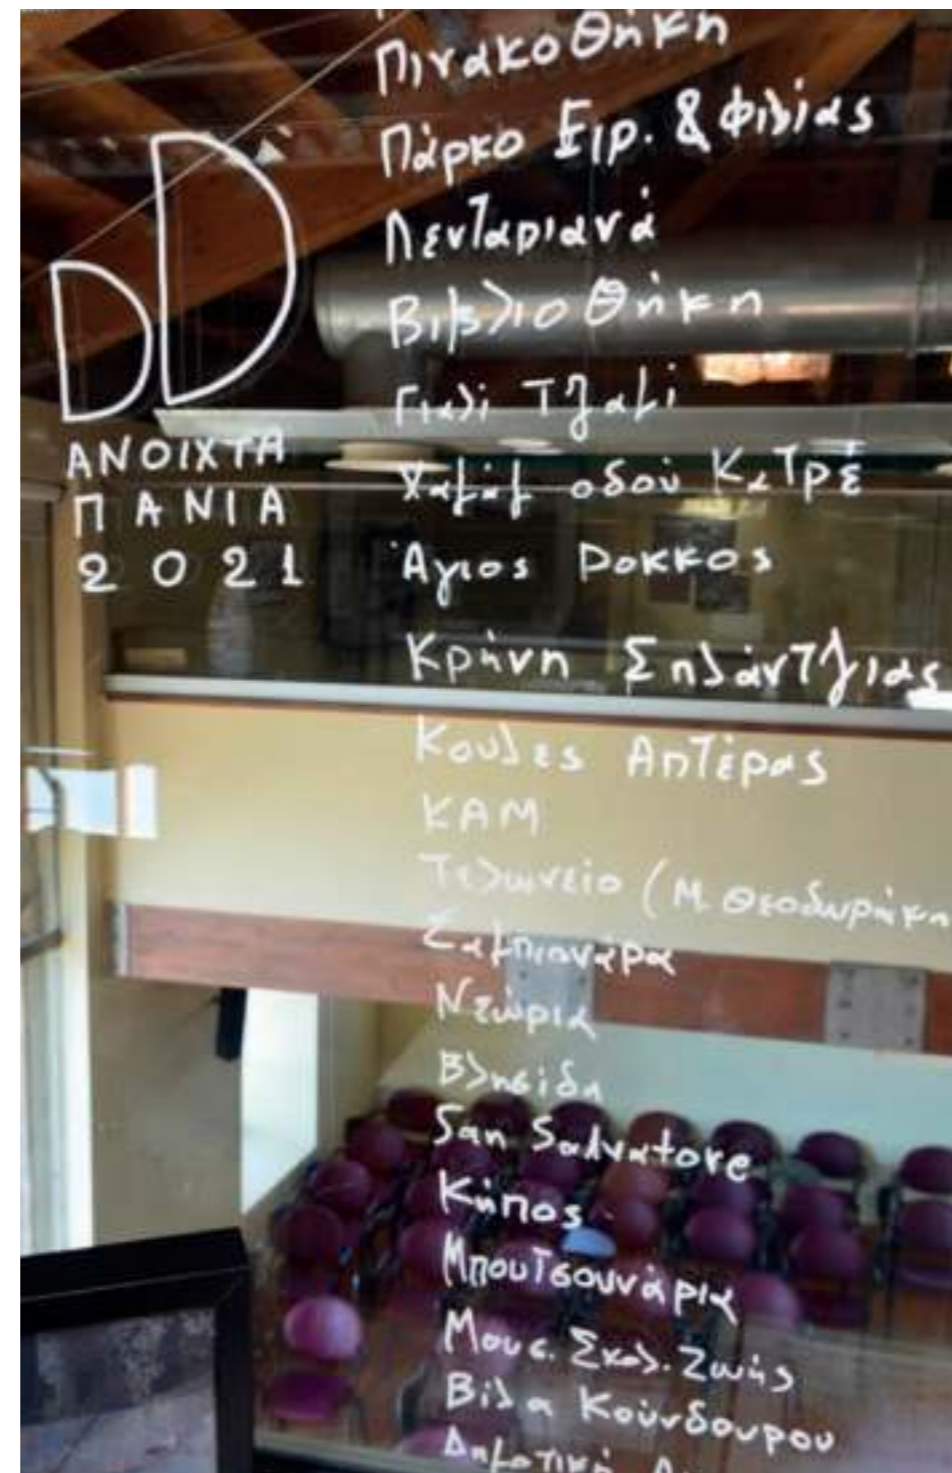 Πινακοθήκη
Πάρκο Ειρ. & Φιλίας
Λενταριανά
Βιβλιοθήκη
Γιαλί Τζαμί
Χαμάμ οδού Κατρέ
Άγιος Ροκκος
Κρήνη Σπλάντζιας
Κουλες Απτέρας
ΚΑΜ
Τελωνείο (Μ. Θεοδωράκη
Σαμπιονάρα
Νεώρια
Βλησίδη
San Salvatore
Κήπος
Μπουτσουνάρια
Μους. Σχολ. Ζωής
Βίλα Κούνδουρου
Δημοτική
DD
ΑΝΟΙΧΤΑ
ΠΑΝΙΑ
2021